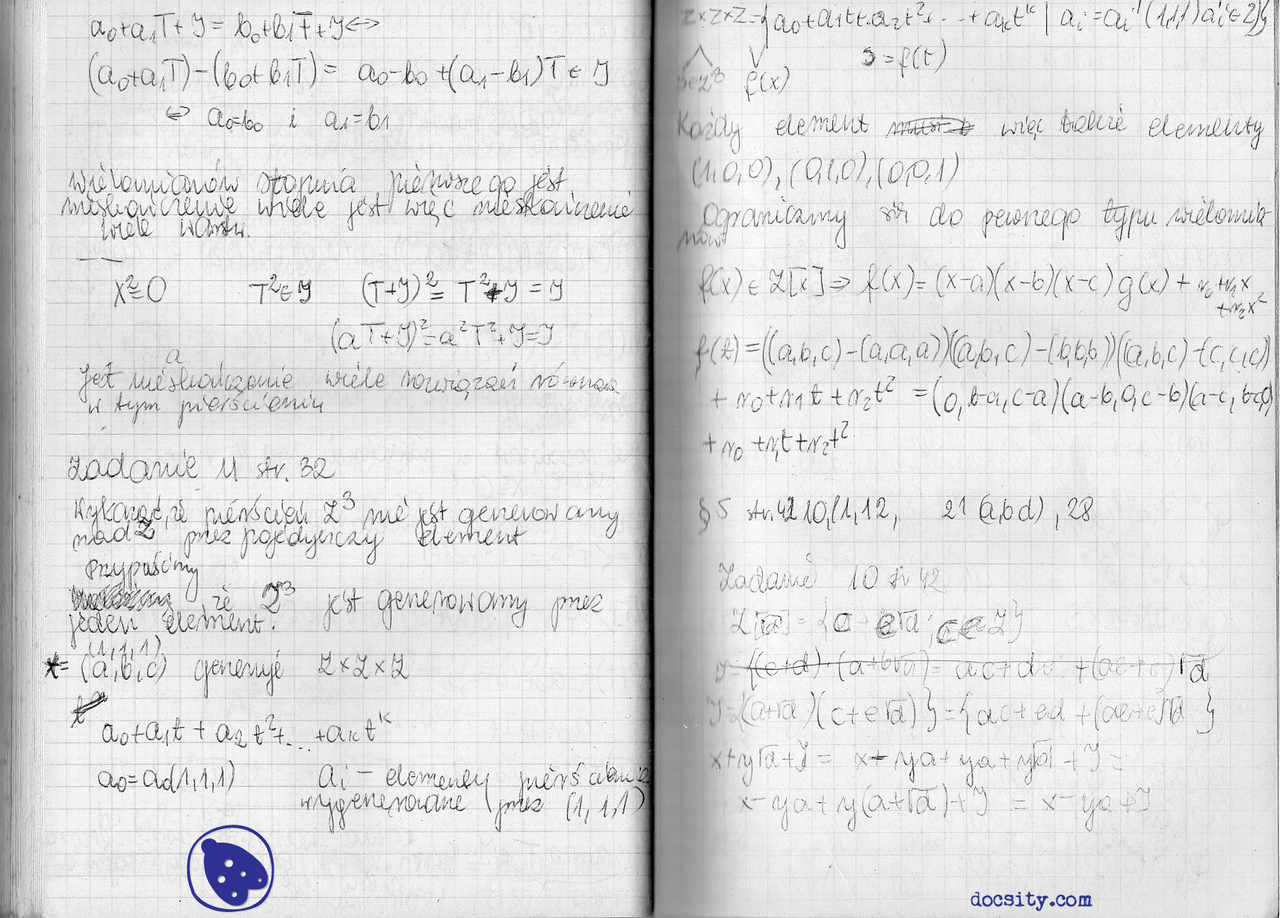 a₀+a₁T+J = b₀+b₁T+J ⟺
(a₀+a₁T)-(b₀+b₁T) = a₀-b₀+(a₁-b₁)T ∈ J
⟺ a₀=b₀ i a₁=b₁
wielomianów stopnia pierwszego jest
nieskończenie wiele jest więc nieskończenie
wiele
X²=0 T²∈J (T+J)² = T²+J = J
(aT+J)²=a²T²+J=J
a
Jest nieskończenie wiele rozwiązań
w tym pierścieniu
Zadanie 11 str. 32
Wykazać, że pierścień Z³ nie jest generowany
nad Z przez pojedynczy element
Przypuśćmy
że Z³ jest generowany przez
jeden element.
(1,1,1)
t= (a,b,c) generuje Z×Z×Z
a₀+a₁t + a₂t²+... +aₖtᵏ
a₀=a₀(1,1,1) aᵢ - elementy pierścienia
wygenerowane przez (1,1,1)
Z×Z×Z={a₀+a₁t+a₂t²+...+aₖtᵏ | aᵢ=aᵢ'(1,1,1) aᵢ'∈Z}
s=f(t)
s∈Z³ f(x)
Każdy element więc także elementy
(1,0,0), (0,1,0), (0,0,1)
Ograniczmy się do pewnego typu wielomia
nów
f(x) ∈ Z[x] ⇒ f(x) = (x-a)(x-b)(x-c) g(x) + r₀+r₁x
+r₂x²
f(t) = ((a,b,c)-(a,a,a))((a,b,c)-(b,b,b))((a,b,c)-(c,c,c))
+ r₀+r₁t + r₂t² = (0,b-a,c-a)(a-b,0,c-b)(a-c,b-c,0)
+r₀+r₁t+r₂t²
§ 5 str. 42 10, 11, 12, 21 (a,b,d), 28
Zadanie 10 str 42
Z[√d] = {c + e√d ; c,e∈Z}
J={(a+√d)(c+e√d)}={ac+ed+(ae+c)√d}
x+y√d+J = x-ya+ya+y√d+J =
x-ya+y(a+√d)+J = x-ya+J
docsity.com